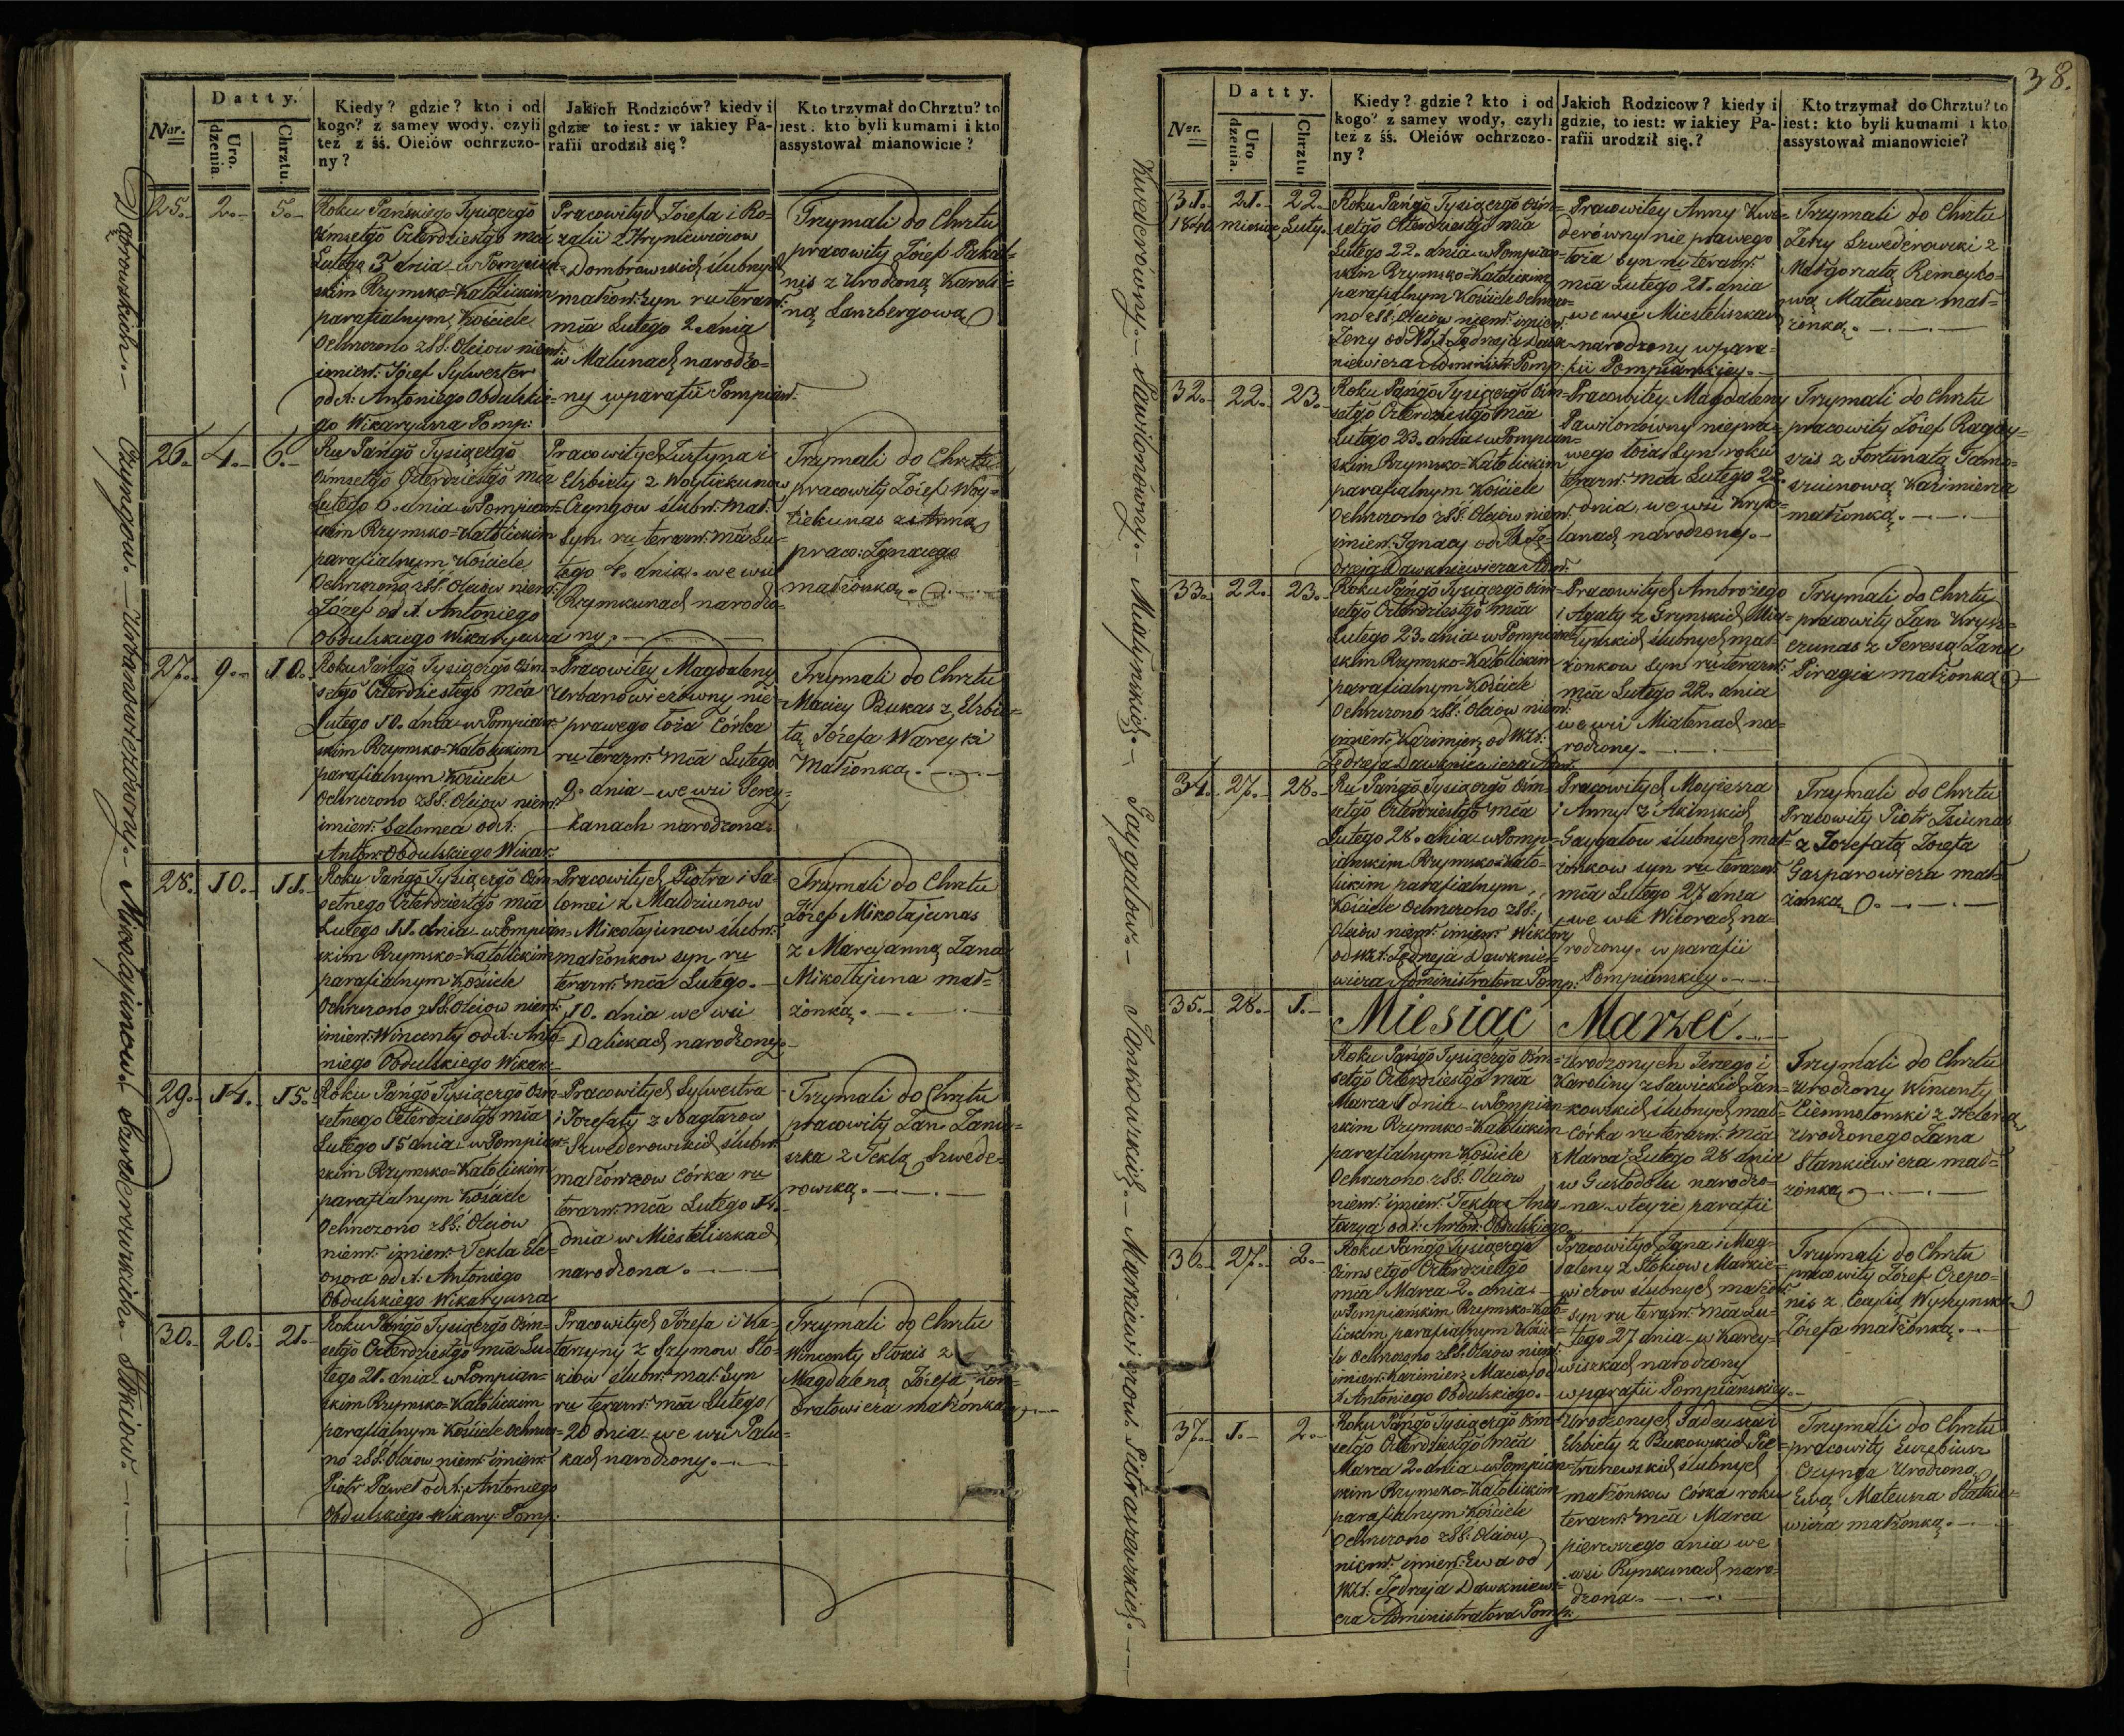 Datty.
Nar.
Uro.
dzenia.
Chrztu.
Kiedy? gdzie? kto i od
kogo? z samey wody, czyli
też z śś. Oleiów ochrzczo-
ny?
Jakich Rodziców? kiedy i
gdzie to iest: w iakiey Pa-
rafii urodził się?
Kto trzymał do Chrztu? to
iest: kto byli kumami i kto
assystował mianowicie?
25. 2. 5.
Roku Pańskiego Tysiącżgo
Ośmsetgo Czterdziestgo mca
Lutego 5 dnia w Pompian-
skim Rzymsko=Katolickim
parafialnym Kościele
Ochrzczono zSS: Oleiow niem:
imien: Jozef Sylwester
od X: Antoniego Obdulskie-
go Wikaryusza Pomp:
Pracowitych Józefa i Ro-
zalii z Hryniewiczow
Dombrowskich ślubnych
małżon: syn ru teraz:
mca Lutego 2. dnia
w Malunach narodzo-
ny w parafii Pompian:
Trzymali do Chrztu
pracowity Józef Pakal-
nis z Urodzoną Karoli-
ną Lanzbergową
26. 4. 6.
Ru Pańgo Tysiącżgo
Ośmsetgo Czterdziestgo mca
Lutego 6. dnia w Pompian-
skim Rzymsko=Katolickim
parafialnym Kościele
Ochrzczono zSS: Oleiów niem:
Józef od X. Antoniego
Obdulskiego Wikaryusza
Pracowitych Justyna i
Elzbiety z Woytiekunow
Czyngow ślubn: mał:
syn ru teraz: mca Lu-
tego 4. dnia we wsi
Rzymkunach narodzo-
ny.
Trzymali do Chrztu
pracowity Józef Woy-
tiekunas z Anną
praco: Ignacego
małżonką.
27. 9. 10.
Roku Pańgo Tysiącżgo Ośm-
setgo Czterdziestego mca
Lutego 10. dnia w Pompian-
skim Rzymsko=Katolickim
parafialnym Kościele
Ochrzczono zSS: Oleiow niem:
imien: Salomea od X:
Anton: Obdulskiego Wikar:
Pracowitey Magdaleny
Urbanowiczowny nie
prawego łoża Córka
ru teraz: mca Lutego
9. dnia we wsi Serey-
kanach narodzona.
Trzymali do Chrztu
Maciey Bukas z Elzbie-
tą Józefa Wareyki
Małżonką.
28. 10. 11.
Roku Pańgo Tysiącżgo Ośm-
setnego Czterdziestgo mca
Lutego 11. dnia w Pompian-
skim Rzymsko=Katolickim
parafialnym Kościele
Ochrzczono zSS: Oleiow niem:
imien: Wincenty od X: Anto-
niego Obdulskiego Wikar:
Pracowitych Piotra i Sa-
lomei z Maldziunow
Mikołajunow ślubn:
małżonkow syn ru
teraz: mca Lutego.
10. dnia we wsi
Dalickach narodzony.
Trzymali do Chrztu
Józef Mikołajunas
z Marcyanną Jana
Mikołajuna mał-
żonką.
29. 14. 15.
Roku Pańgo Tysiącżgo Ośm-
setnego Czterdziestgo mca
Lutego 15 dnia w Pompian-
skim Rzymsko=Katolickim
parafialnym Kościele
Ochrzczono zSS: Oleiow
niem: imien: Tekla Ele-
onora od X: Antoniego
Obdulskiego Wikaryusza
Pracowitych Sylwestra
i Jozefaty z Naglarow
Szwederowskich ślubn:
małżonkow Córka ru
teraz: mca Lutego 14.
dnia w Miesteliszkach
narodzona.
Trzymali do Chrztu
pracowity Jan Janu-
szka z Teklą Szwede-
rowską.
30. 20. 21.
Roku Pańgo Tysiącżgo Ośm-
setgo Czterdziestgo mca Lu-
tego 21. dnia w Pompian-
skim Rzymsko=Katolickim
parafialnym Kościele Ochrzczo-
no zSS: Oleiow niem: imien:
Piotr Paweł od X: Antoniego
Obdulskiego Wikary: Pomp.
Pracowitych Józefa i Ka-
tarzyny z Szymow Sto-
kiow ślubn: mał: Syn
ru teraz: mca Lutego
20 dnia we wsi Palu-
kach narodzony.
Trzymali do Chrztu
Wincenty Stokis z
Magdaleną Józefa Kon-
dratowicza małżonką.
Dąbrowskich. Czyngow. Urbanowiczowny. Mikołajunow. Szwederowskich. Stokiow.
38.
Datty.
Nar.
Uro
dzenia.
Chrztu
Kiedy? gdzie? kto i od
kogo? z samey wody, czyli
też z śś. Oleiów ochrzczo-
ny?
Jakich Rodzicow? kiedy i
gdzie, to iest: w iakiey Pa-
rafii urodził się.?
Kto trzymał do Chrztu? to
iest: kto byli kumami i kto
assystował mianowicie?
31. 21. 22.
1840 miesiąc Luty.
Roku Pańgo Tysiącżgo Ośm-
setgo Czterdziestgo mca
Lutego 22. dnia w Pompian-
skim Rzymsko=Katolickim
parafialnym Kościele Ochrzczo-
no zSS: Oleiow niem: imien:
Jerzy od WX. Jędrzeja Dawk-
niewicza Administr: Pomp:
Pracowitey Anny Kwe-
derówny nie prawego
łoża syn ru teraz:
mca Lutego 21. dnia
we wsi Miesteliszkach
narodzony w para-
fii Pompianskiey.
Trzymali do Chrztu
Jerzy Szwederowski z
Małgorzatą Remeyko-
wą Mateusza mał-
żonką.
32. 22. 23.
Roku Pańgo Tysiącżgo Ośm-
setgo Czterdziestgo mca
Lutego 23. dnia w Pompian-
skim Rzymsko=Katolickim
parafialnym Kościele
Ochrzczono zSS: Oleiow niem:
imien: Ignacy od WX. Ję-
drzeja Dawkniewicza Adm:
Pracowitey Magdaleny
Pawilonówny niepra-
wego łoża Syn roku
teraz: mca Lutego 22.
dnia we wsi Kryk-
lanach narodzony.
Trzymali do Chrztu
pracowity Józef Raguy-
szis z Fortunatą Tamo-
sziunową Kazimierza
małżonką.
33. 22. 23.
Roku Pańgo Tysiącżgo Ośm-
setgo Czterdziestgo mca
Lutego 23. dnia w Pompian-
skim Rzymsko=Katolickim
parafialnym Kościele
Ochrzczono zSS: Oleiow niem:
imien: Kazimierz od WX:
Jędrzeja Dawkniewicza Adm:
Pracowitych Ambrożego
i Agaty z Grynskich Mia-
tynskich ślubnych mał-
żonkow syn ru teraz:
mca Lutego 22. dnia
we wsi Miałonach na-
rodzony.
Trzymali do Chrztu
pracowity Jan Krysz-
czunas z Teressą Jana
Piragia małżonką
34. 27. 28.
Ru Pańgo Tysiącżgo Ośm-
setgo Czterdziestgo mca
Lutego 28. dnia w Pomp-
ianskim Rzymsko=Kato-
lickim parafialnym
Kościele Ochrzczono zSS:
Oleiow niem: imien: Wiktory
od WX: Jędrzeja Dawknie-
wicza Administratora Pomp:
Pracowitych Moyżesza
i Anny z Akinskich
Gaygałow ślubnych mał-
żonkow syn ru teraz:
mca Lutego 27 dnia
we wsi Witorach na-
rodzony w parafii
Pompianskiey.
Trzymali do Chrztu
Pracowity Piotr Dziunas
z Jozefatą Jozefa
Gasparowicza mał-
żonką.
35. 28. 1.
Miesiąc Marzeć.
Roku Pańgo Tysiącżgo Ośm-
setgo Czterdziestgo mca
Marca 1 dnia w Pompian-
skim Rzymsko=Katolickim
parafialnym Kościele
Ochrzczono zSS: Oleiow
niem: imien: Tekla Anas-
tazya od X: Anton: Obdulskiego
Urodzonych Jerzego i
Karoliny z Sawickich Jan-
kowskich ślubnych mał-
Córka ru teraz: mca
Marca Lutego 28 dnia
w Gustodolu narodzo-
na w teyże parafii
Trzymali do Chrztu
Urodzony Wincenty
Ciemnołonski z Heleną
Urodzonego Jana
Stankiewicza mał-
żonką.
36. 27. 2.
Roku Pańgo Tysiącżgo
Ośmsetgo Czterdziestgo
mca Marca 2. dnia
w Pompiańskim Rzymsko=Kato-
lickim parafialnym Koście-
le Ochrzczono zSS. Oleiow niem:
imien: Kazimierz Maciey od
X Antoniego Obdulskiego.
Pracowitych Jana i Mag-
daleny z Stokiow Markie-
wiczow ślubnych małżon:
syn ru teraz: mca Lu-
tego 27 dnia w Karey-
wiszkach narodzony
w parafii Pompiańskiey.
Trzymali do Chrztu
pracowity Józef Czepo-
nis z Cecylią Wyszynską
Józefa małżonką.
37. 1. 2.
Roku Pańgo Tysiącżgo Ośm-
setgo Czterdziestgo mca
Marca 2. dnia w Pompian-
skim Rzymsko=Katolickim
parafialnym Kościele
Ochrzczono zSS. Oleiow
niem: imien: Ewa od
WX: Jędrzeja Dawkniewi-
cza Administratora Pomp:
Urodzonych Tadeusza i
Elzbiety z Bukowskich Pie-
traszewskich ślubnych
małżonkow Córka roku
teraz: mca Marca
pierwszego dnia we
wsi Rynkunach naro-
dzona.
Trzymali do Chrztu
pracowity Euzebiusz
Czynga Urodzoną
Ewą Mateusza Statkie-
wicza małżonką.
Kwederówny. Pawilonówny. Miatynskich. Gaygałow. Jankowskich. Markiewiczow. Pietraszewskich.